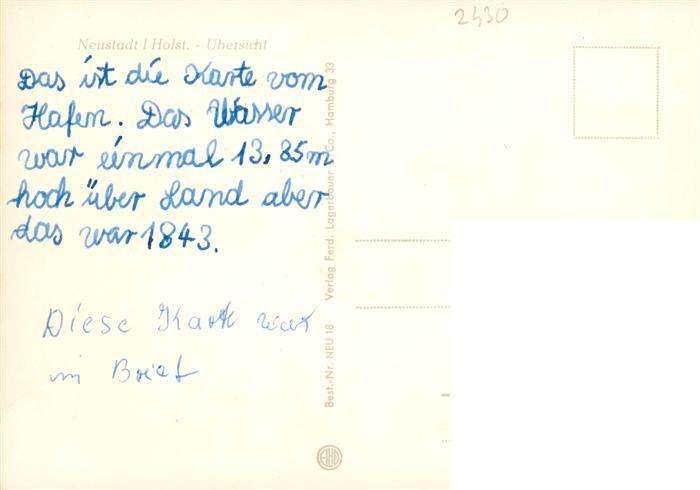 2430
Neustadt I Holst. - Übersicht
Das ist die Karte vom
Hafen. Das Wasser
war einmal 13,85m
hoch über Land aber
das war 1843.
Diese Karte war
im Brief
Best.-Nr. NEU 18 Verlag Ferd. Lagerbauer & Co., Hamburg 33